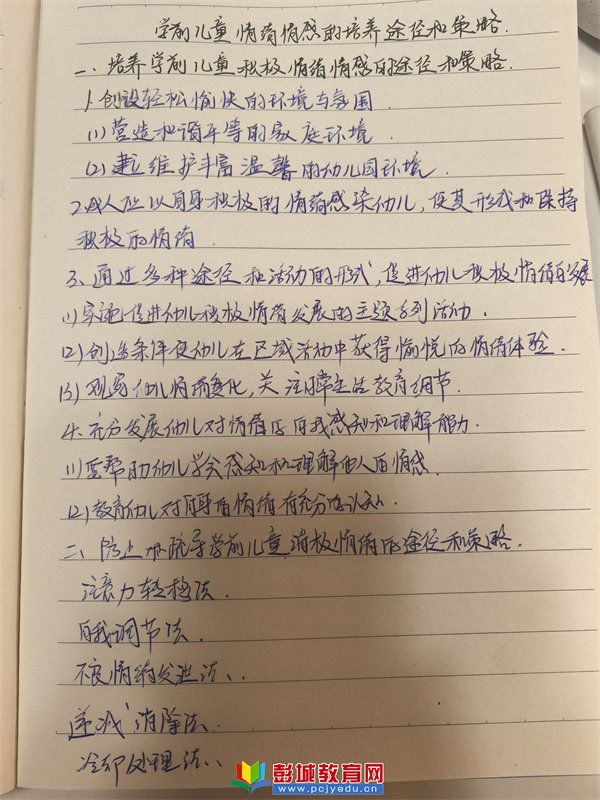 学前儿童情绪情感的培养途径和策略.
一、培养学前儿童积极情绪情感的途径和策略.
1、创设轻松愉快的环境与氛围
(1)营造和谐平等的家庭环境.
(2)建立维护丰富温馨的幼儿园环境.
2.成人应以自身积极的情绪感染幼儿,使其形成和保持
积极的情绪.
3、通过多种途径和活动的形式,促进幼儿积极情绪的发展
(1)实施促进幼儿积极情绪发展的主题系列活动.
(2)创造条件使幼儿在区域活动中获得愉悦的情绪体验.
(3)观察幼儿情绪变化,关注日常生活教育细节.
4.充分发展幼儿对情绪的自我感知和理解能力.
(1)要帮助幼儿学会感知和理解他人的情感.
(2)教育幼儿对自身的情绪有充分的认知.
二、防止和疏导学前儿童消极情绪的途径和策略.
注意力转移法.
自我调节法.
不良情绪发泄法.
递减消除法.
冷却处理法.
彭城教育网
www.pcjyedu.cn